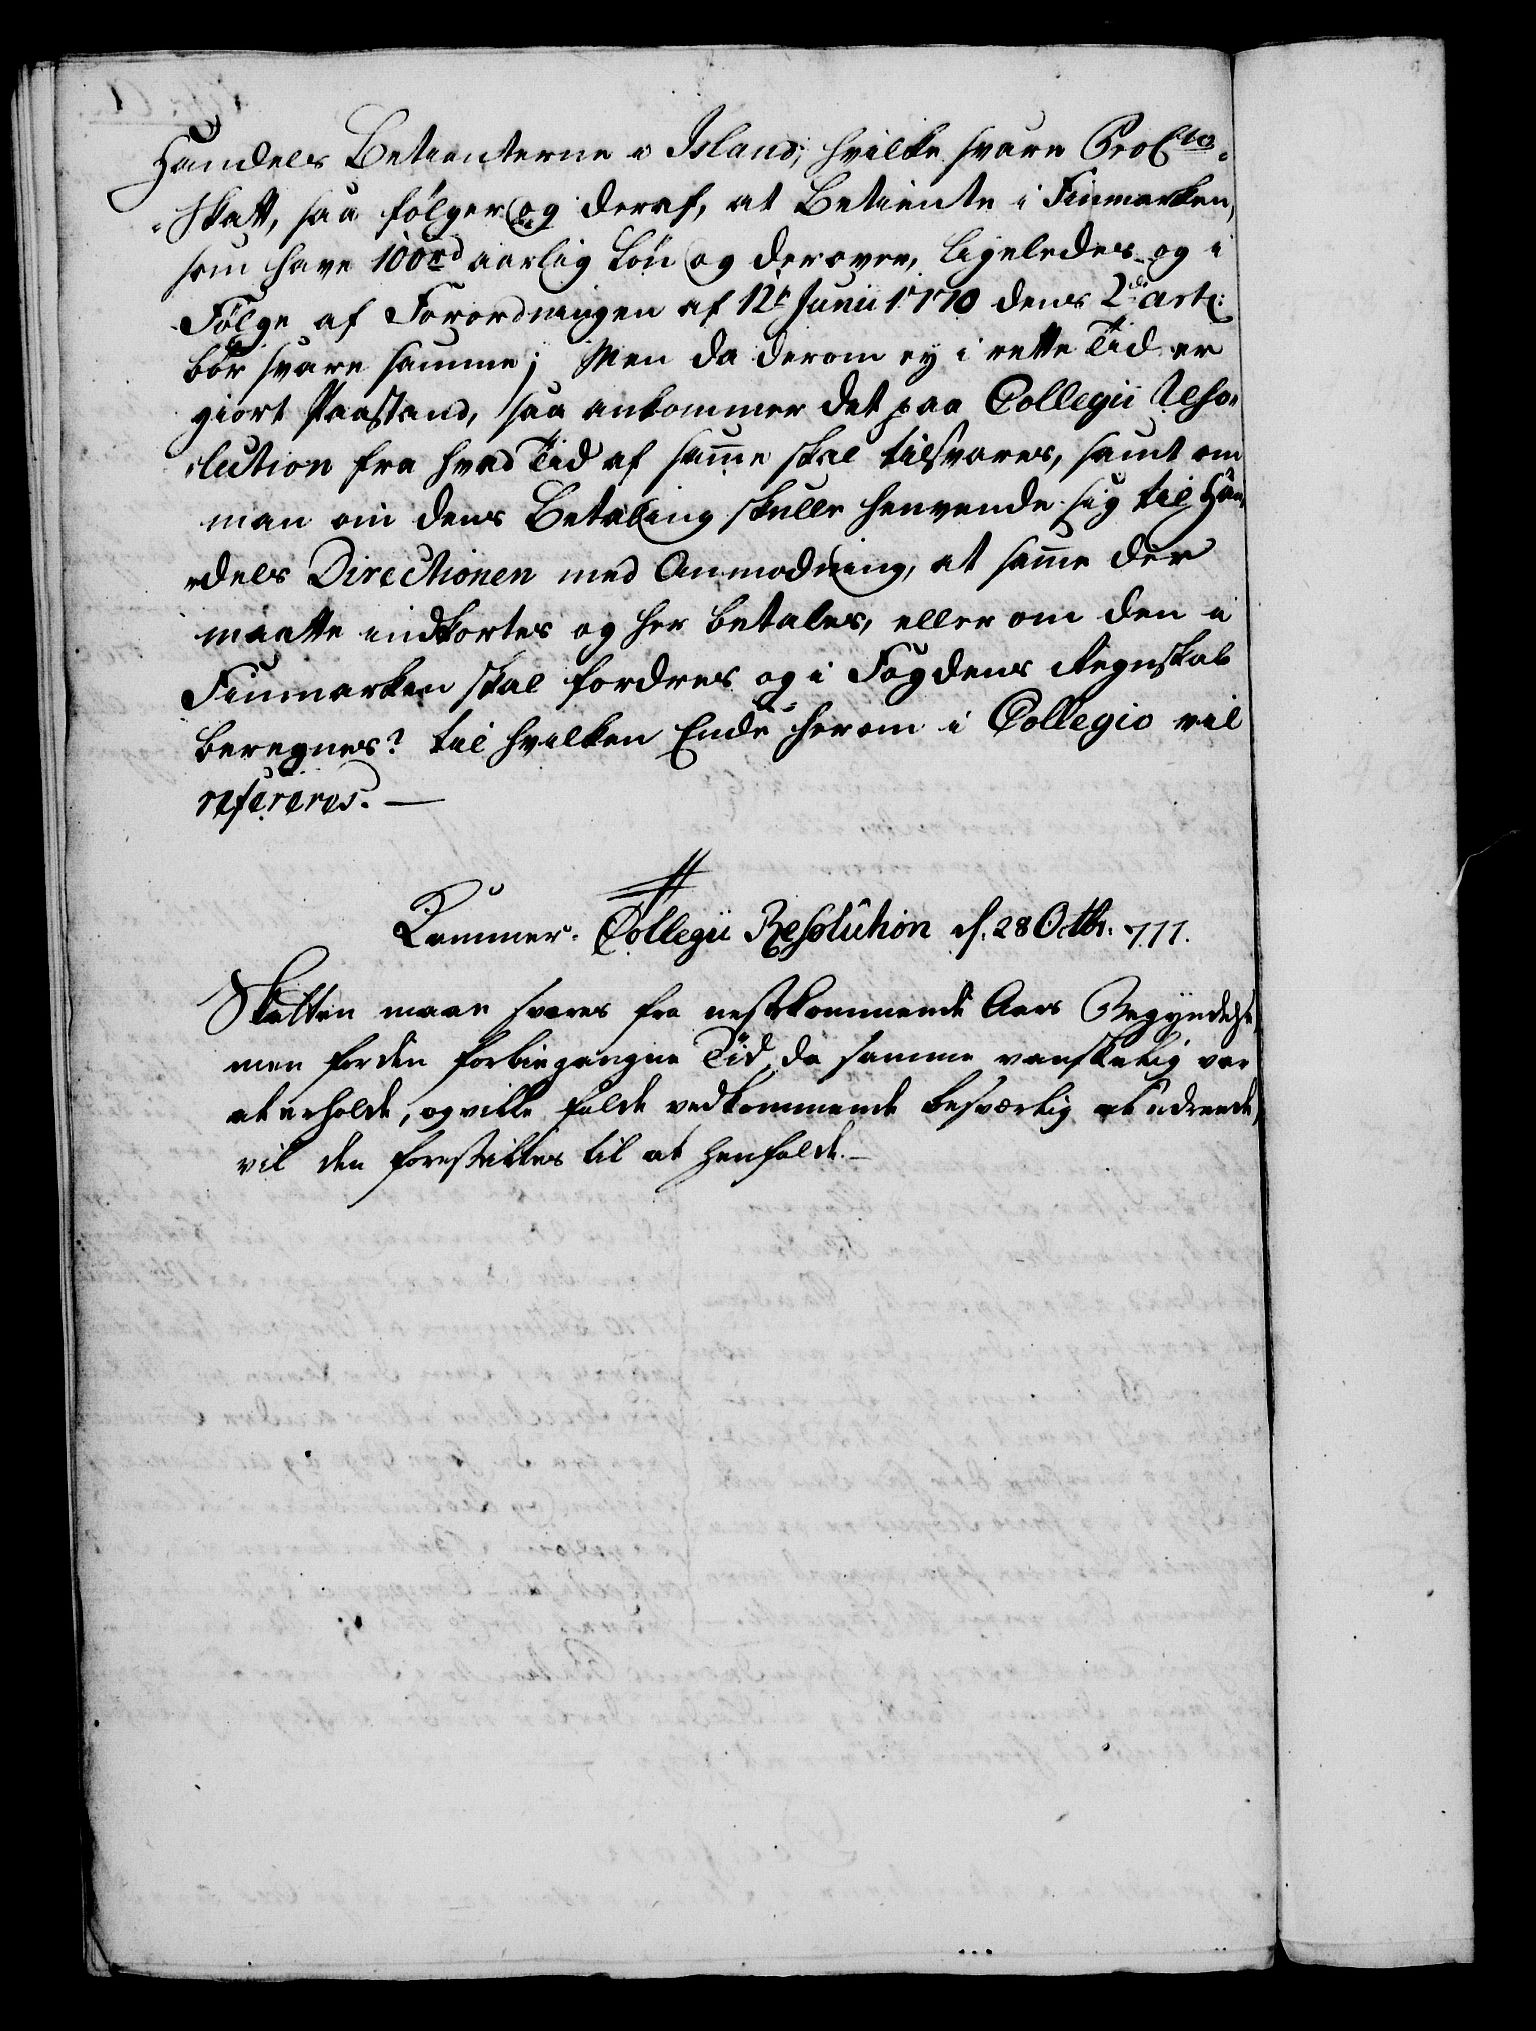 Handels Betienterne i Island, hvilke svare ProCto-
-Skatt, saa følger og deraf, at Betiente i Finmarken,
som have 100rd aarlig Løn og derover, ligeledes og i
Følge af Forordningen af 12te Junii 1770 dens 2den art:
bør svare samme; Men da derom ej i rette Tid er
giort Paastand, saa ankommer det paa Collegii Reso-
-lution fra hvad Tid af same skal tilsvares, samt om
man om dens Betaling skulle henvende sig til Han-
-dels Directionen med Anmodning, at same der
maatte indkortes og her betales, eller om den i
Finmarken skal fordres og i Fogdens Regnskab
beregnes? til hvilken Ende herom i Collegio vil
refereres. —
Kammer-Collegii Resolution d. 28 Octbr. 777.
Skatten maae svares fra nestkommende Aars Begyndelse,
men for den forbiegangne Tid, da samme vanskelig var
at erholde, og ville falde vedkommende besværlig at udreede,
vil den forestilles til at henfalde. —